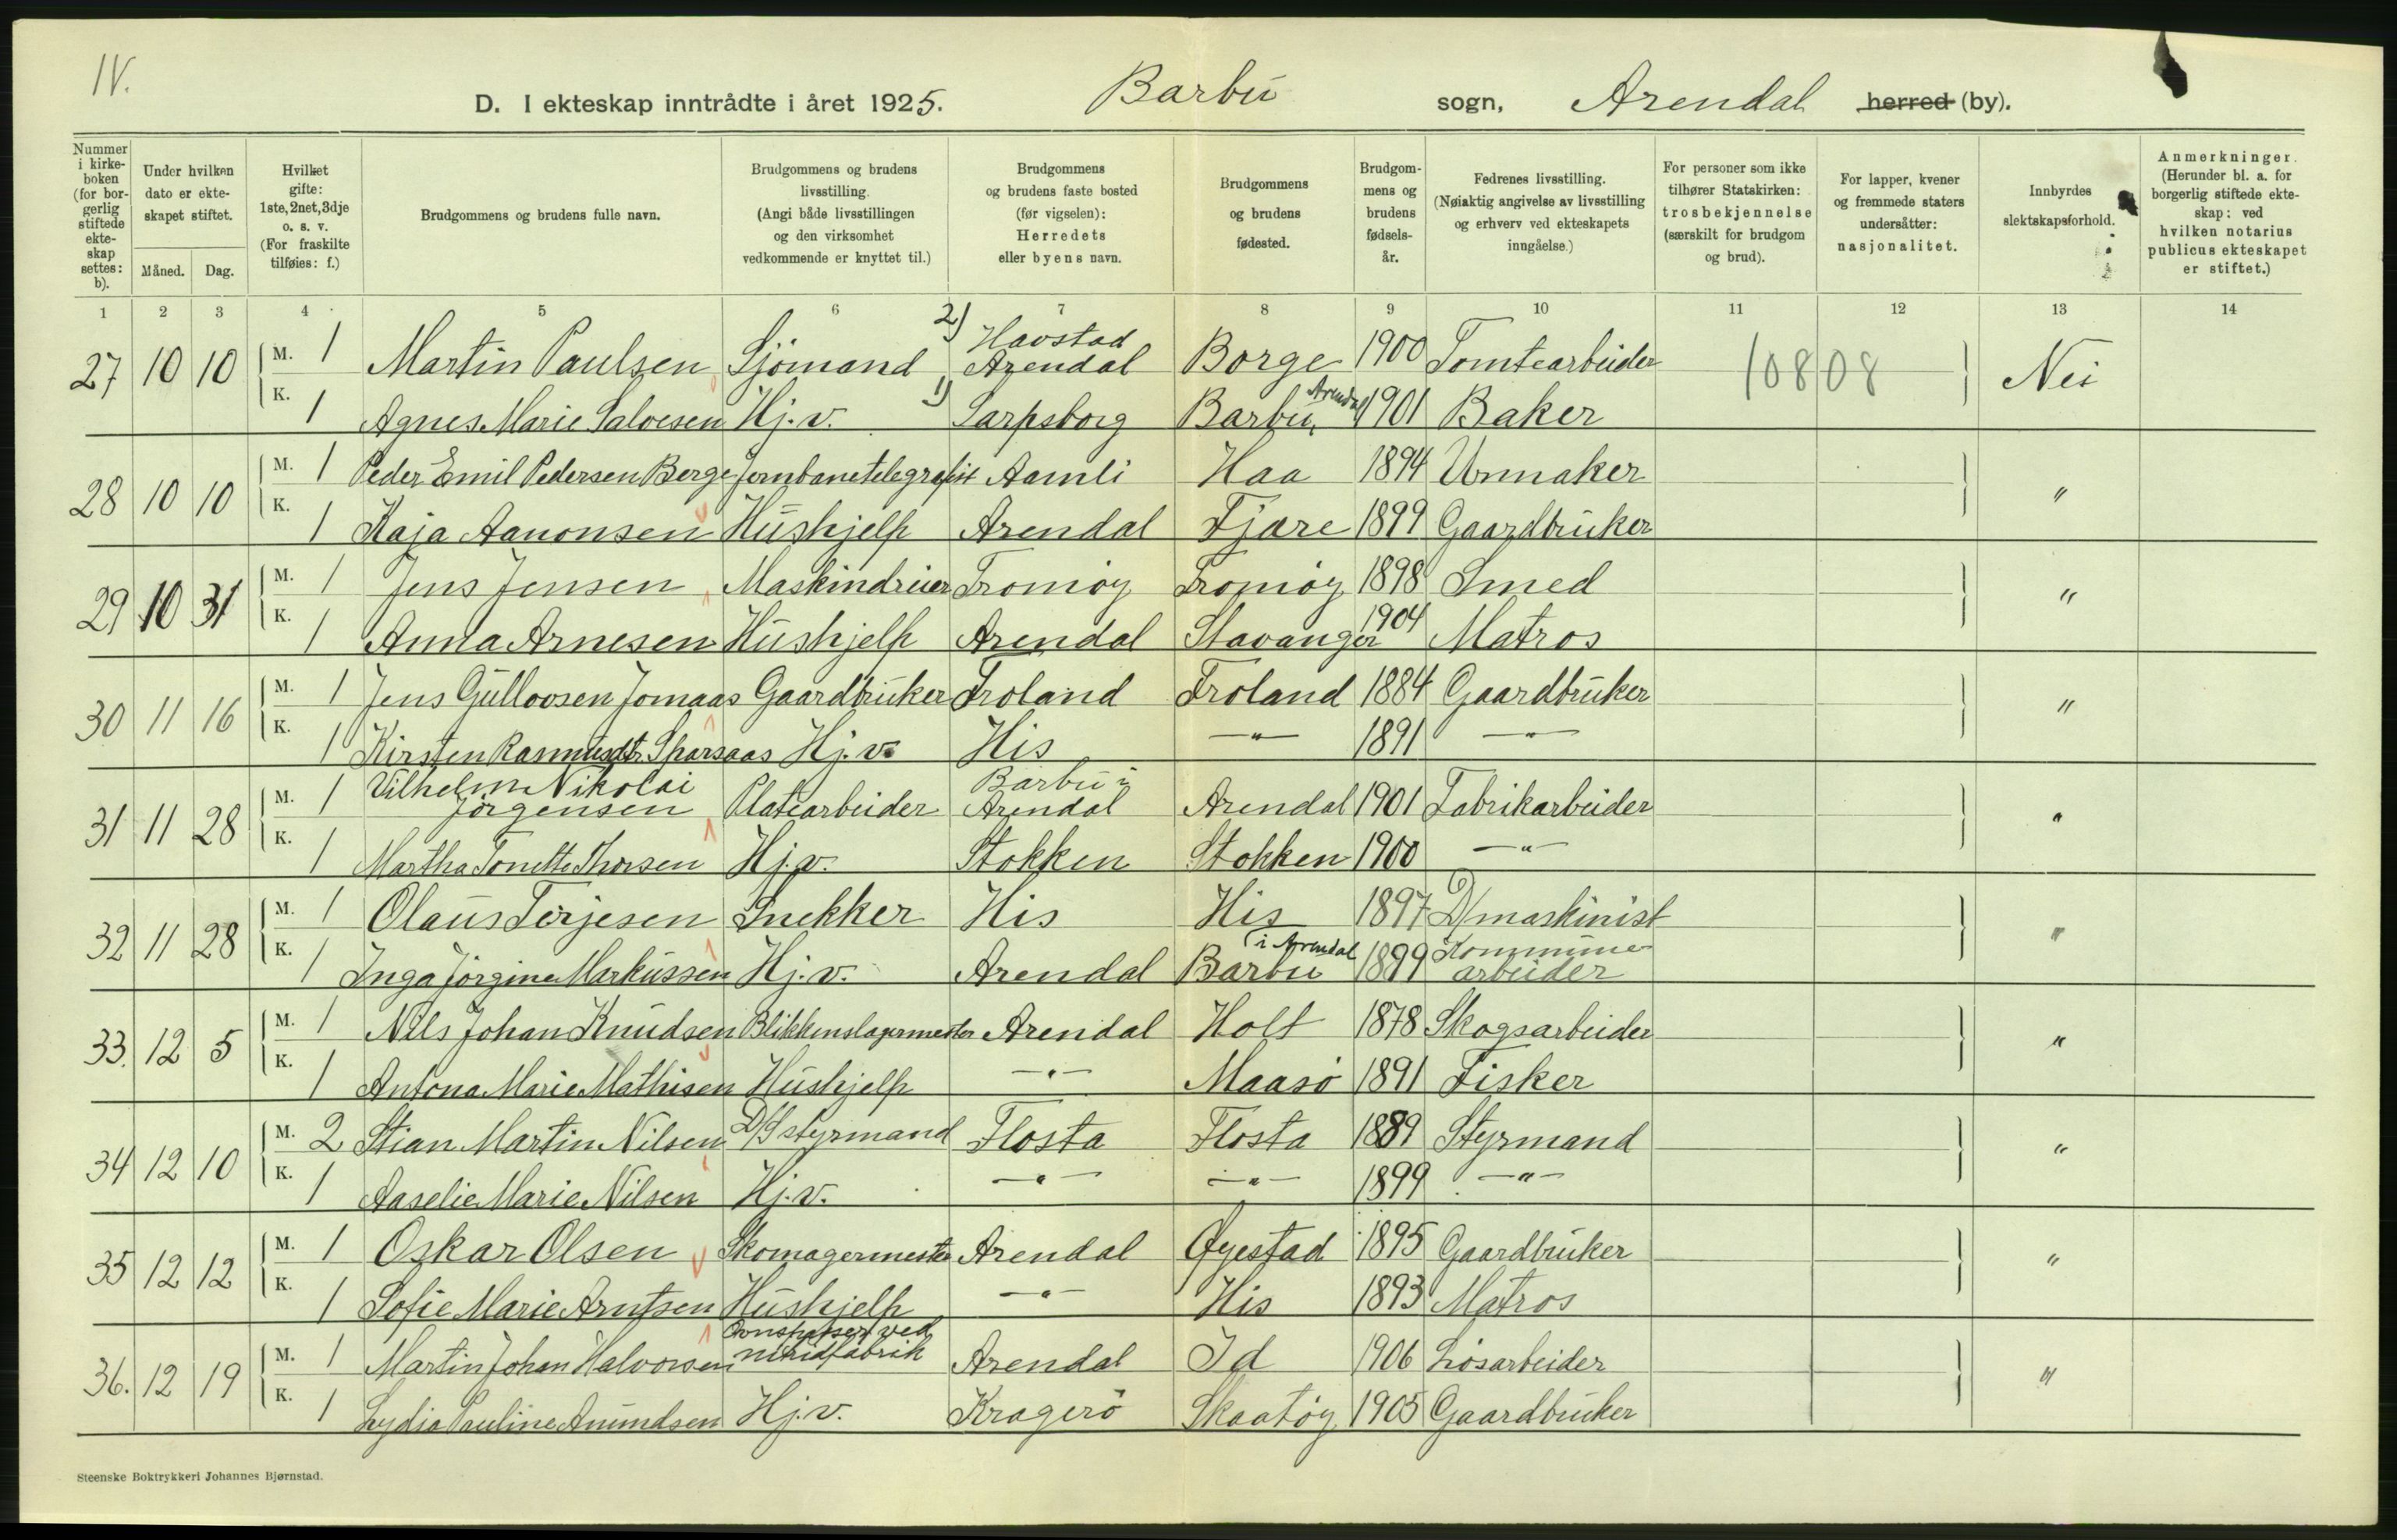 IV.
D. I ekteskap inntrådte i året 1925. Barbu sogn, Arendal herred (by).
Nummer i kirke- boken (for bor- gerlig stiftede ekte- skap settes: b).
Under hvilken dato er ekte- skapet stiftet.
Måned. Dag.
Hvilket gifte: 1ste, 2net, 3dje o. s. v. (For fraskilte tilføies: f.)
Brudgommens og brudens fulle navn.
Brudgommens og brudens livsstilling. (Angi både livsstillingen og den virksomhet vedkommende er knyttet til.)
Brudgommens og brudens faste bosted (før vigselen): Herredets eller byens navn.
Brudgommens og brudens fødested.
Brudgom- mens og brudens fødsels- år.
Fedrenes livsstilling. (Nøiaktig angivelse av livsstilling og erhverv ved ekteskapets inngåelse.)
For personer som ikke tilhører Statskirken: trosbekjennelse (særskilt for brudgom og brud).
For lapper, kvener og fremmede staters undersåtter: nasjonalitet.
Innbyrdes slektskapsforhold.
Anmerkninger. (Herunder bl. a. for borgerlig stiftede ekte- skap: ved hvilken notarius publicus ekteskapet er stiftet.)
1 2 3 4 5 6 7 8 9 10 11 12 13 14
27 10 10 M. 1 Martin Paulsen Sjömand 2) Havstad Arendal Borge 1900 Tomtearbeider 10808 Nei
K. 1 Agnes Marie Salvesen Hj.v. 1) Sarpsborg Barbu, Arendal 1901 Baker
28 10 10 M. 1 Peder Emil Pedersen Berge Jernbanetelegrafist Aamli Haa 1894 Urmaker "
K. 1 Kaja Aanonsen Hushjelp Arendal Fjære 1899 Gaardbruker
29 10 31 M. 1 Jens Jensen Maskindreier Tromöy Tromöy 1898 Smed "
K. 1 Anna Arnesen Hushjelp Arendal Stavanger 1904 Matros
30 11 16 M. 1 Jens Gullovsen Jomaas Gaardbruker Froland Froland 1884 Gaardbruker "
K. 1 Kirsten Rasmusdtr. Sparsaas Hj.v. His —"— 1891 —"—
31 11 28 M. 1 Vilhelm Nikolai Jörgensen Platearbeider Barbu i Arendal Arendal 1901 Fabrikarbeider "
K. 1 Martha Tonette Thorsen Hj.v. Stokken Stokken 1900 —"—
32 11 28 M. 1 Olaus Terjesen Snekker His His 1897 D/maskinist "
K. 1 Inga Jörgine Markussen Hj.v. Arendal Barbu i Arendal 1899 Kommune arbeider
33. 12 5 M. 1 Nils Johan Knudsen Blikkenslagermester Arendal Holt 1878 Skogsarbeider "
K. 1 Antona Marie Mathisen Hushjelp —"— Maasö 1891 Fisker
34 12 10 M. 2 Stian Martin Nilsen D/S styrmand Flosta Flosta 1889 Styrmand "
K. 1 Aaselie Marie Nilsen Hj.v. —"— —"— 1899 —"—
35 12 12 M. 1 Oskar Olsen Skomagermester Arendal Øyestad 1895 Gaardbruker "
K. 1 Sofie Marie Arntsen Hushjelp —"— His 1893 Matros
36. 12 19 M. 1 Martin Johan Halvorsen Ovnspasser ved nitridfabrik Arendal Id 1906 Lösarbeider "
K. 1 Lydia Pauline Anundsen Hj.v. Kragerö Skaatöy 1905 Gaardbruker
Steenske Boktrykkeri Johannes Bjørnstad.